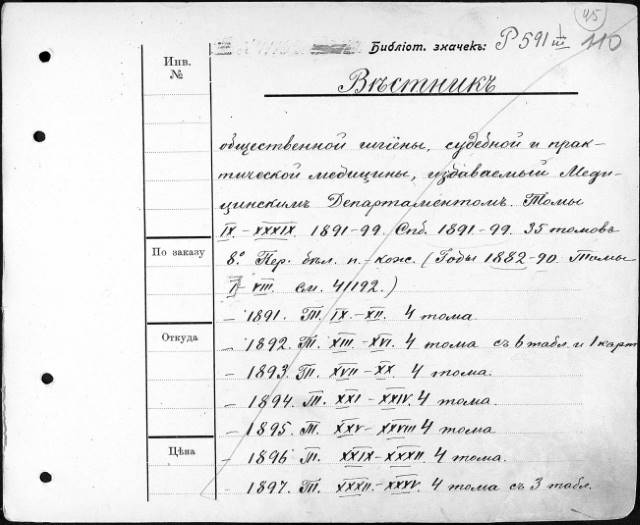 45
Библіот. значекъ: P 591 1/III 110
Инв. №
Вѣстникъ
общественной гигіены, судебной и прак-
тической медицины, издаваемый Меди-
цинскимъ Департаментомъ. Томы
IX.-XXXIX. 1891-99. Спб. 1891-99. 35 томовъ
По заказу
8° Пер. бѣл. п.-кож. (Годы 1882-90. Томы
VIII. см. 41192.)
- 1891. Т. IX.-XII. 4 тома.
Откуда
- 1892. Т. XIII.-XVI. 4 тома съ 6 табл. и 1 карт
- 1893. Т. XVII-XX. 4 тома.
- 1894. Т. XXI-XXIV. 4 тома.
- 1895. Т. XXV-XXVIII 4 тома
Цѣна
- 1896 Т. XXIX-XXXII. 4 тома.
- 1897. Т. XXXII.-XXXV. 4 тома съ 3 табл.